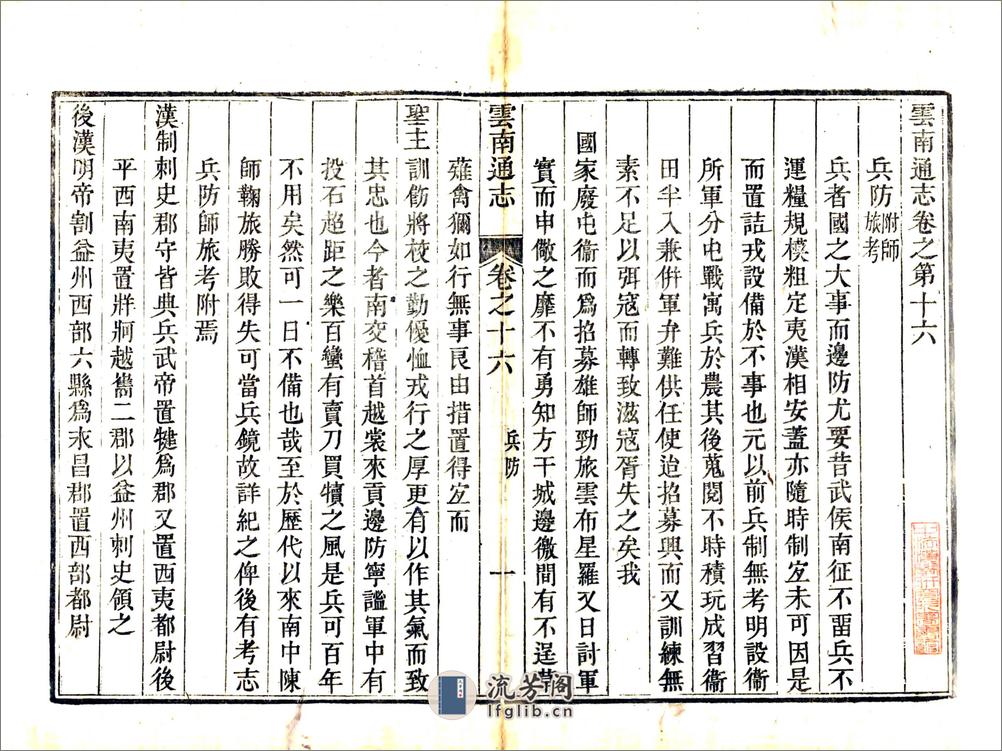 雲南通志卷之第十六
兵防附師旅考
兵者國之大事而邊防尤要昔武侯南征不畱兵不
運糧規模粗定夷漢相安蓋亦隨時制宜未可因是
而置詰戎設備於不事也元以前兵制無考明設衞
所軍分屯戰寓兵於農其後蒐閱不時積玩成習衞
田半入兼併軍弁難供任使迨招募興而又訓練無
素不足以弭寇而轉致滋寇胥失之矣我
國家廢屯衞而爲招募雄師勁旅雲布星羅又日討軍
實而申儆之靡不有勇知方干城邊徼間有不逞草
薙禽獮如行無事良由措置得宜而
聖主訓飭將校之勤優恤戎行之厚更有以作其氣而致
其忠也今者南交稽首越裳來貢邊防寧謐軍中有
投石超距之樂百蠻有賣刀買犢之風是兵可百年
不用矣然可一日不備也哉至於歷代以來南中陳
師鞠旅勝敗得失可當兵鏡故詳紀之俾後有考志
兵防師旅考附焉
漢制刺史郡守皆典兵武帝置犍爲郡又置西夷都尉後
平西南夷置牂牁越嶲二郡以益州刺史領之
後漢明帝割益州西部六縣爲永昌郡置西部都尉
雲南通志
卷之十六
兵防
一
流芳閣
lfglib.cn